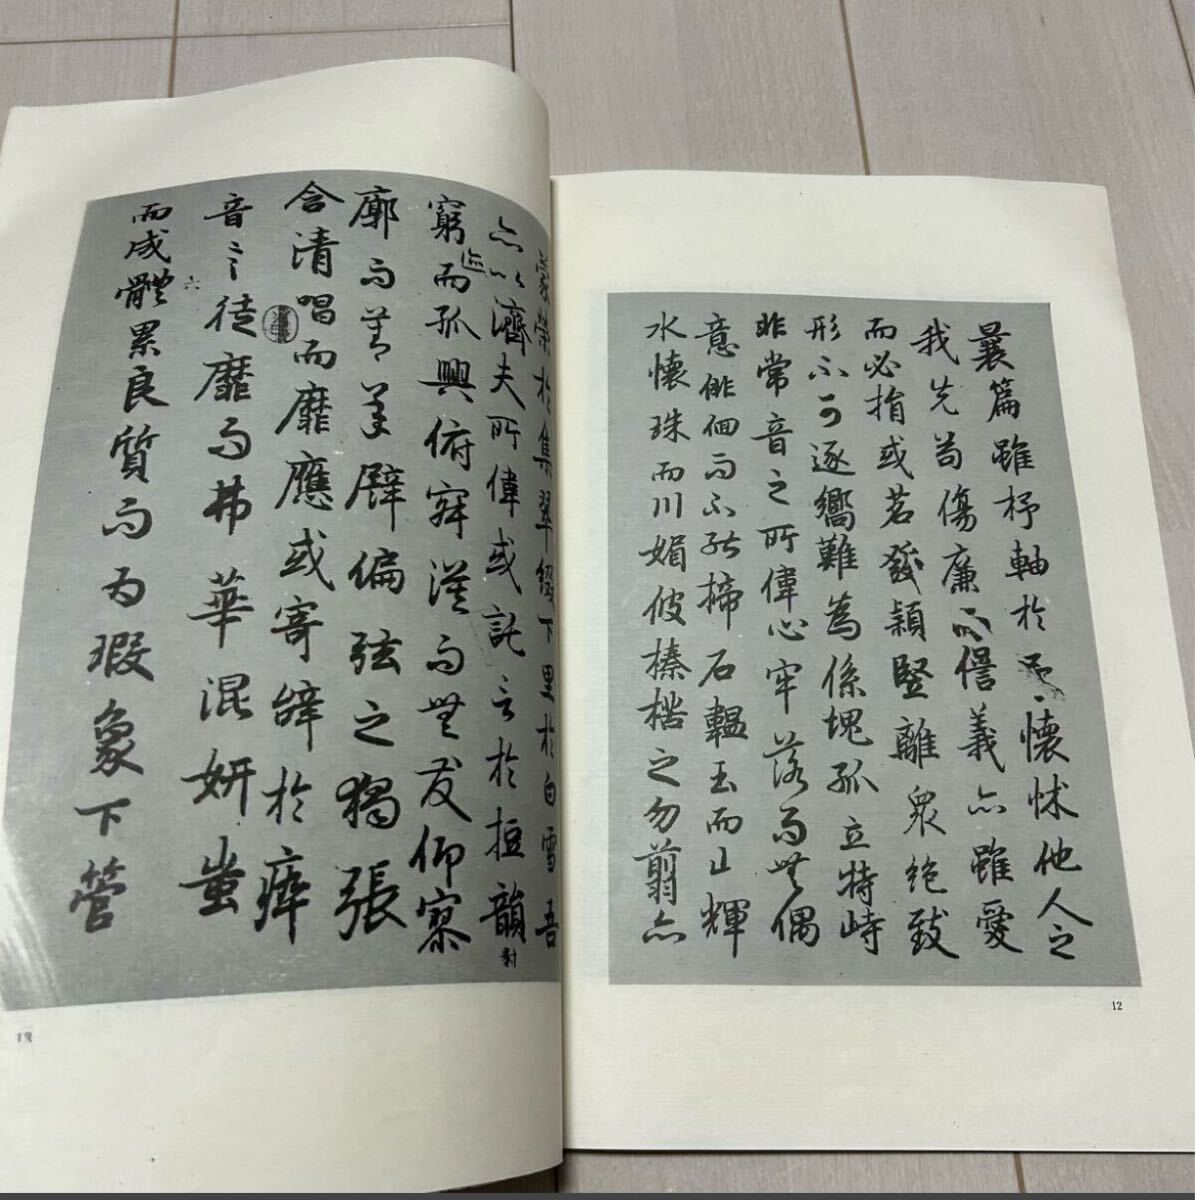 曩篇雖杼軸於予懷怵他人之
我先苟傷廉而愆義亦雖愛
而必捐或苕發穎豎離眾絕致
形不可逐嚮難為係塊孤立特峙
非常音之所偉心牢落而無偶
意徘徊而不能揥石韞玉而山輝
水懷珠而川媚彼榛楛之勿翦亦
12
蒙榮於集翠綴下里於白雪吾
亦以濟夫所偉或託言於短韻對
窮迹而孤興俯寂漠而無友仰寥
廓而莫承譬偏弦之獨張
含清唱而靡應或寄辭於瘁
音言徒靡而弗華混妍蚩
六
而成體累良質而為瑕象下管
13